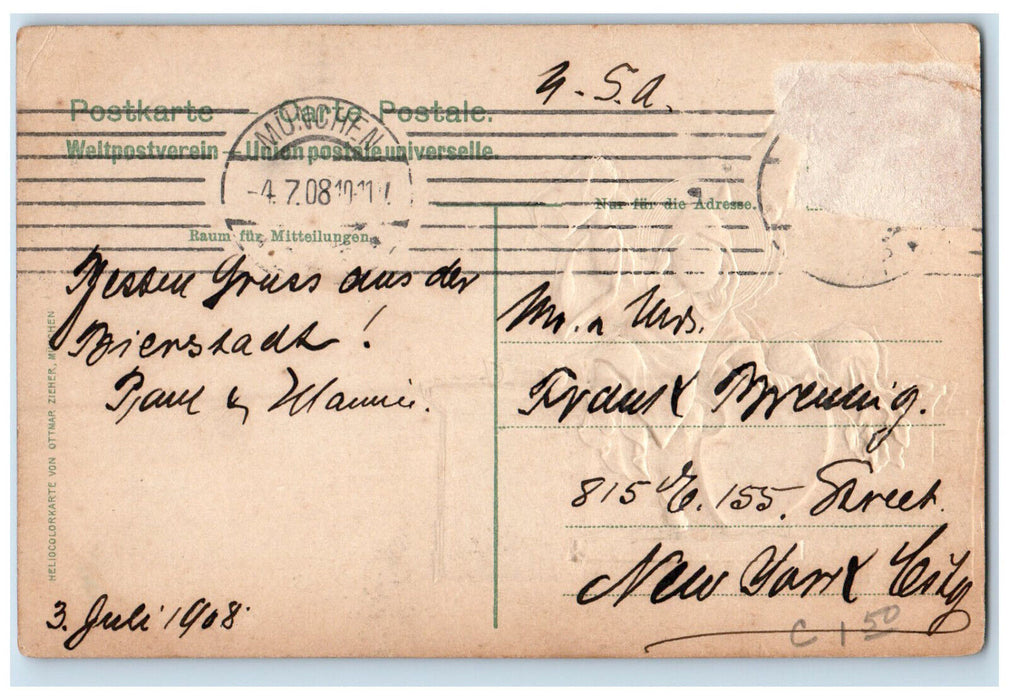 U.S.A.
Postkarte — Carte Postale.
Weltpostverein — Union postale universelle.
MÜNCHEN
-4.7.08 10-11 V
Nur für die Adresse.
Raum für Mitteilungen.
Besten Gruss aus der
Bierstadt!
Paul & Mamie.
3. Juli 1908.
HELIOCOLORKARTE VON OTTMAR ZIEHER, MÜNCHEN
Mr. & Mrs.
Frank Brennig.
815 E. 155. Street.
New York City
C 1 50